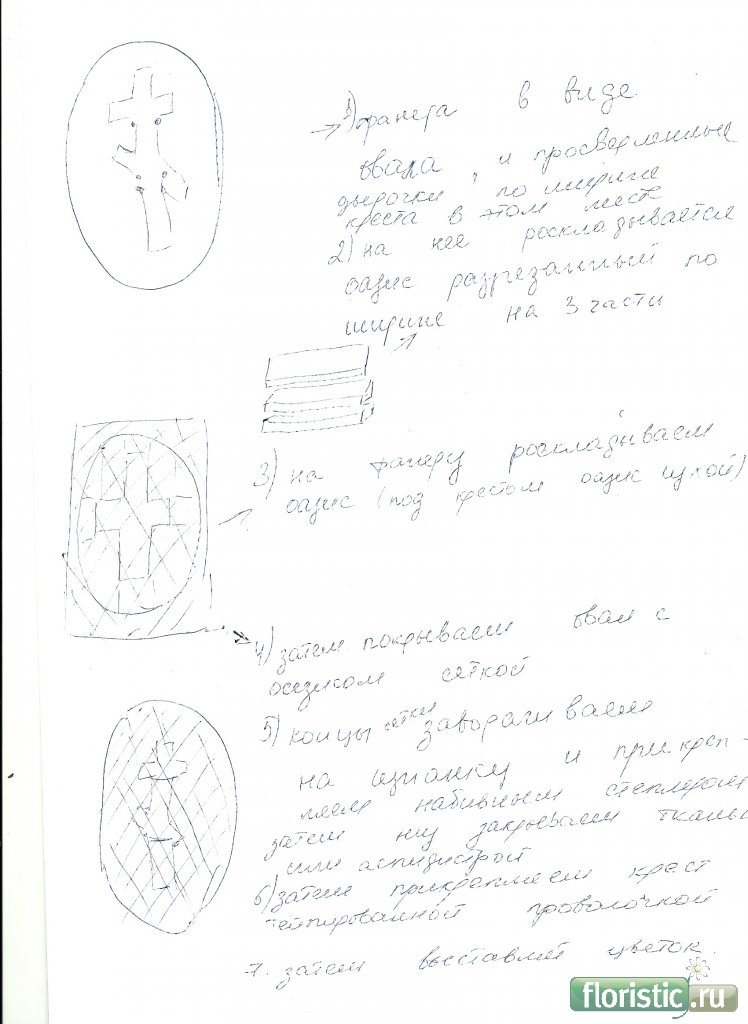 1) фанера в виде
овала, и просверленные
дырочки по ширине
креста в этом месте
2) на нее роскладывается
оазис разрезанный по
ширине на 3 части
3) на фанеру роскладываем
оазис (под крестом оазис сухой)
4) затем покрываем овал с
оазиком сеткой
5) концы сетки заворачиваем
на изнанку и прикреп-
ляем набивным степлером
затем низ закрываем тканью
или аспидистрой
6) затем прикрепляем крест
тейпированной проволочкой
7. затем выставил цветок.
floristic.ru